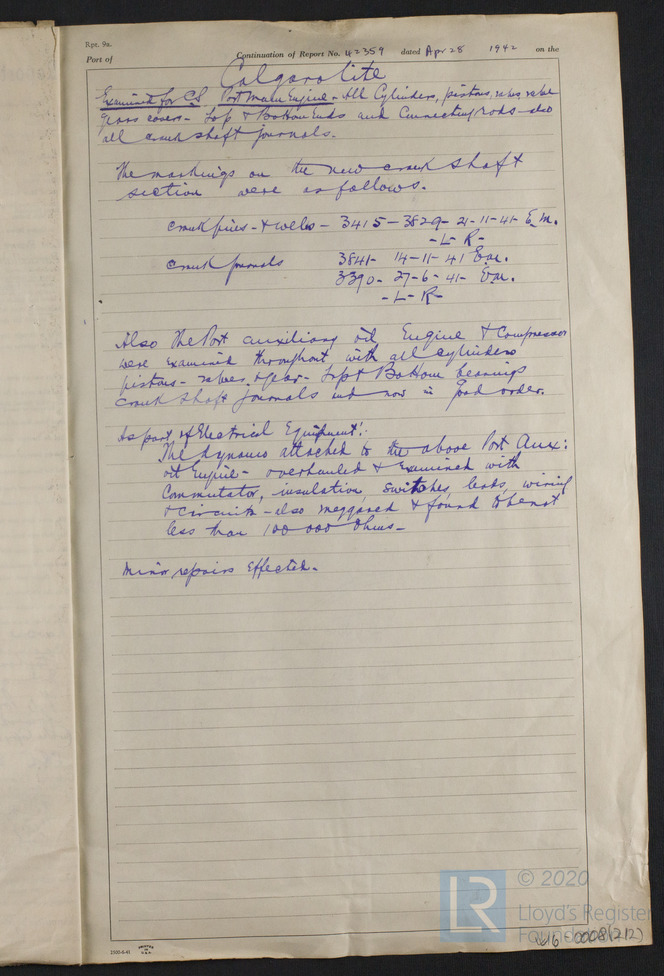 Rpt. 9a.
Port of Continuation of Report No. 42359 dated Apr 28 1942 on the
Calgarolite
Examined for CS Port Main Engine - All Cylinders, pistons, valves valve
gears covers - Top & Bottom Ends and Connecting rods - also
all crank shaft journals.
The markings on the new crank shaft
section were as follows.
Crank pins - & webs - 3415 - 3829 - 21-11-41 E.M.
- L - R -
Crank journals 3841 - 14-11-41 E.M.
3390 - 27-6-41 - E.M.
- L - R -
Also the Port auxiliary oil Engine & Compressor
were examined throughout with all cylinders
pistons - valves & gear - Top & Bottom bearings
crank shaft journals and now in good order.
As part of Electrical Equipment:
The dynamo attached to the above Port Aux:
oil Engine - overhauled & Examined with
Commutator, insulation, switches, leads, wiring
& circuits - also meggared & found to be not
less than 100 000 Ohms -
Minor repairs effected.
2500-8-41 PRINTED IN U.S.A.
LR © 2020
Lloyd's Register
Foundation
W16-0008(212)